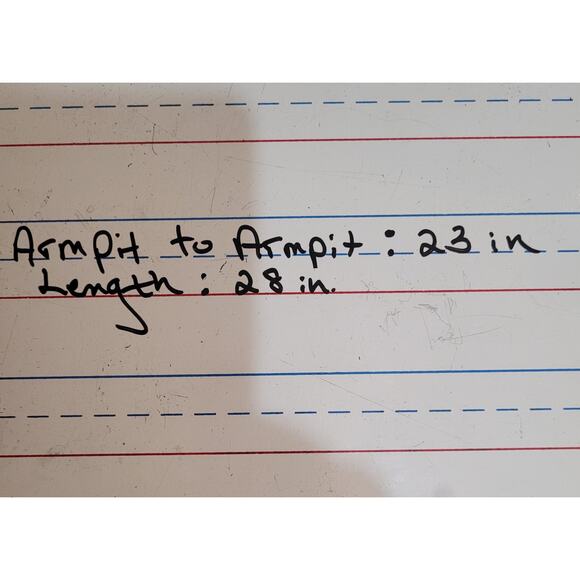 Armpit to Armpit : 23 in
Length : 28 in.